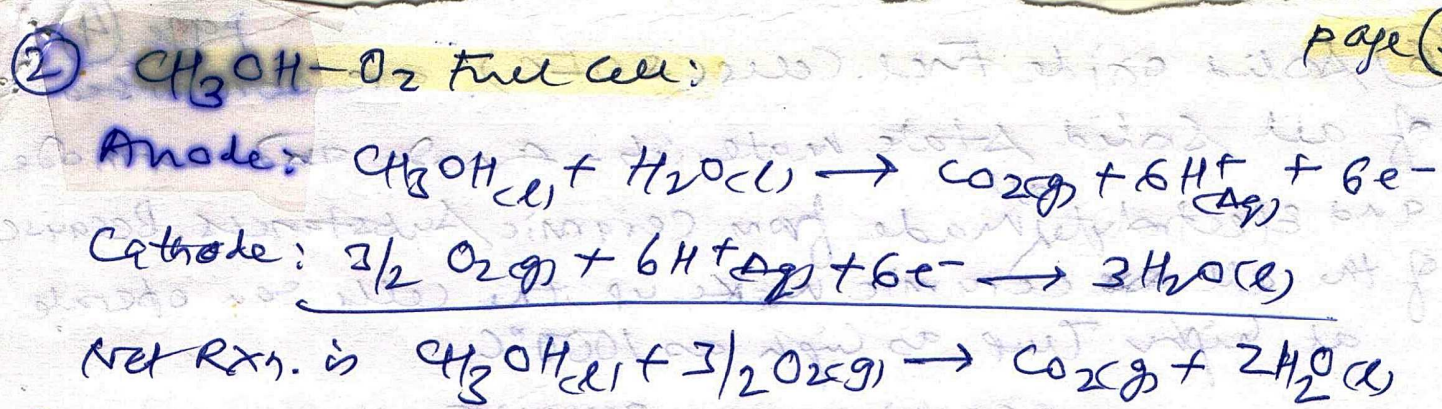 ② CH₃OH – O₂ Fuel Cell: page (
Anode: CH₃OH(l) + H₂O(l) → CO₂(g) + 6H⁺(Aq) + 6e⁻
Cathode: 3/2 O₂(g) + 6H⁺(Aq) + 6e⁻ → 3H₂O(l)
Net Rxn. is CH₃OH(l) + 3/2 O₂(g) → CO₂(g) + 2H₂O(l)